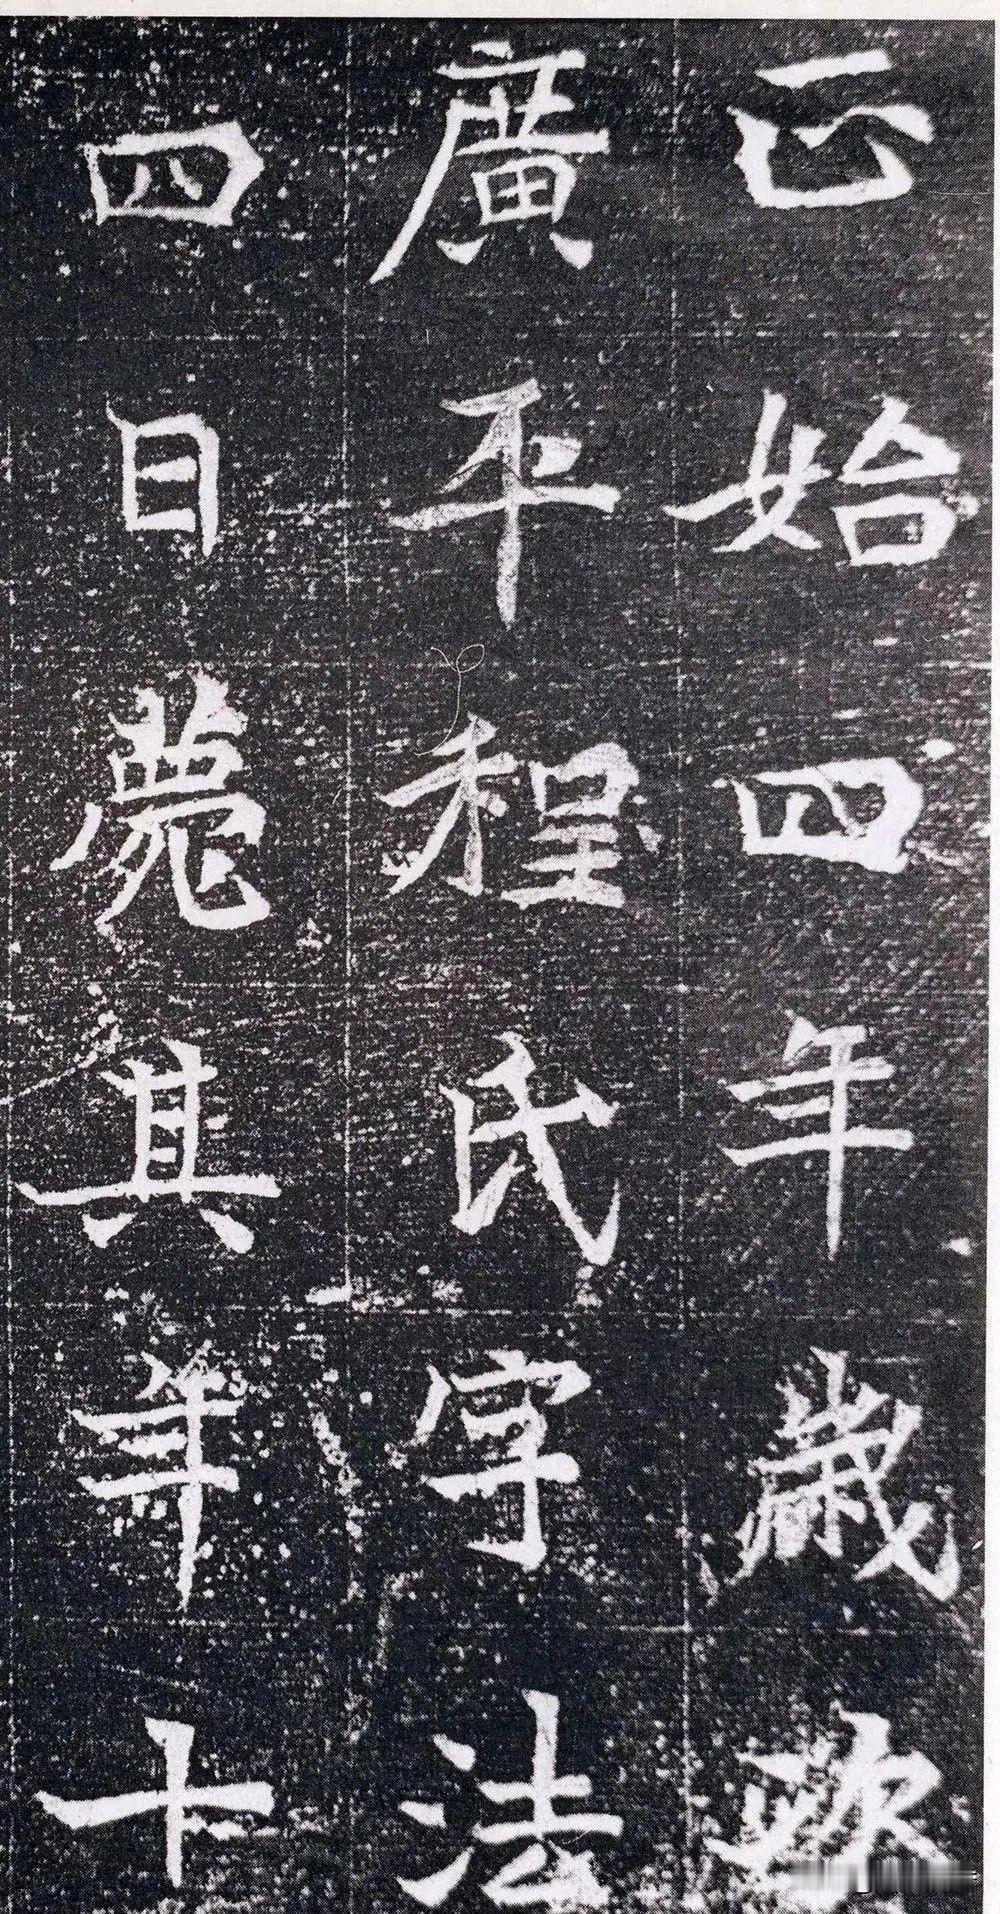 正始四年歲次
廣平程氏字法
四日薨其年十